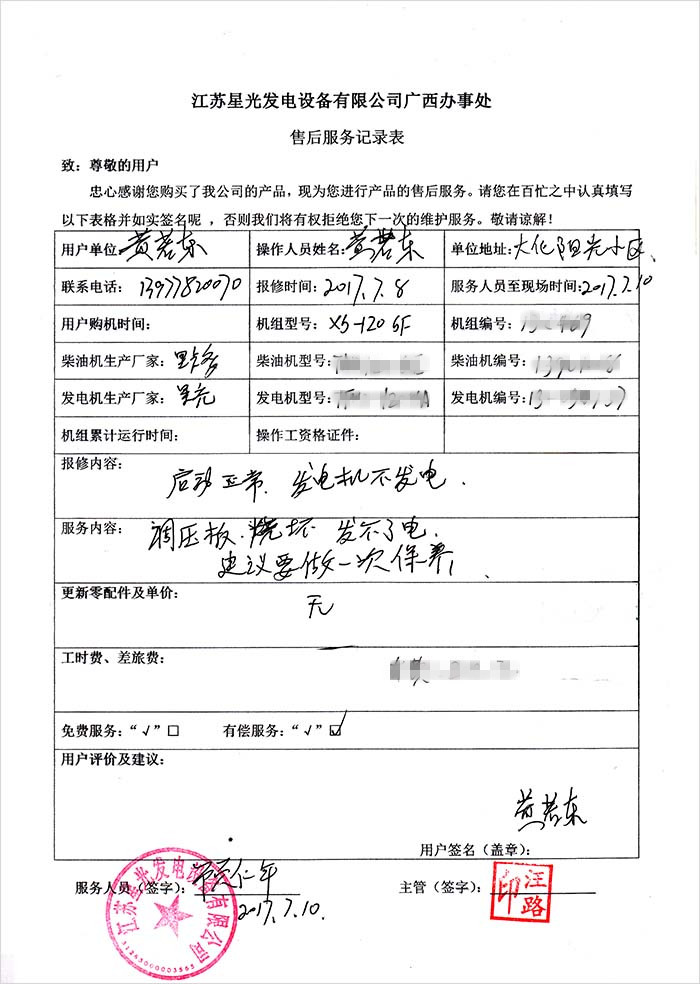 江苏星光发电设备有限公司广西办事处
售后服务记录表
致：尊敬的用户
忠心感谢您购买了我公司的产品，现为您进行产品的售后服务。请您在百忙之中认真填写
以下表格并如实签名呢 ，否则我们将有权拒绝您下一次的维护服务。敬请谅解！
用户单位 黄若东 操作人员姓名：黄若东 单位地址：大化阳光小区、
联系电话：13977820070 报修时间：2017.7.8 服务人员至现场时间：2017.7.10
用户购机时间： 机组型号：XG-120GF 机组编号：
柴油机生产厂家： 柴油机型号： 柴油机编号：
发电机生产厂家：星光 发电机型号： 发电机编号：
机组累计运行时间： 操作工资格证件：
报修内容：
启动正常、发电机不发电．
服务内容：调压板．烧坏 发不了电，
建议要做一次保养，
更新零配件及单价：
无
工时费、差旅费：
免费服务：“√”□ 有偿服务：“√”☑
用户评价及建议：
黄若东
用户签名（盖章）：
服务人员（签字）： 仁年 主管（签字）：
2017.7.10
江苏星光发电设备有限公司
汪路印